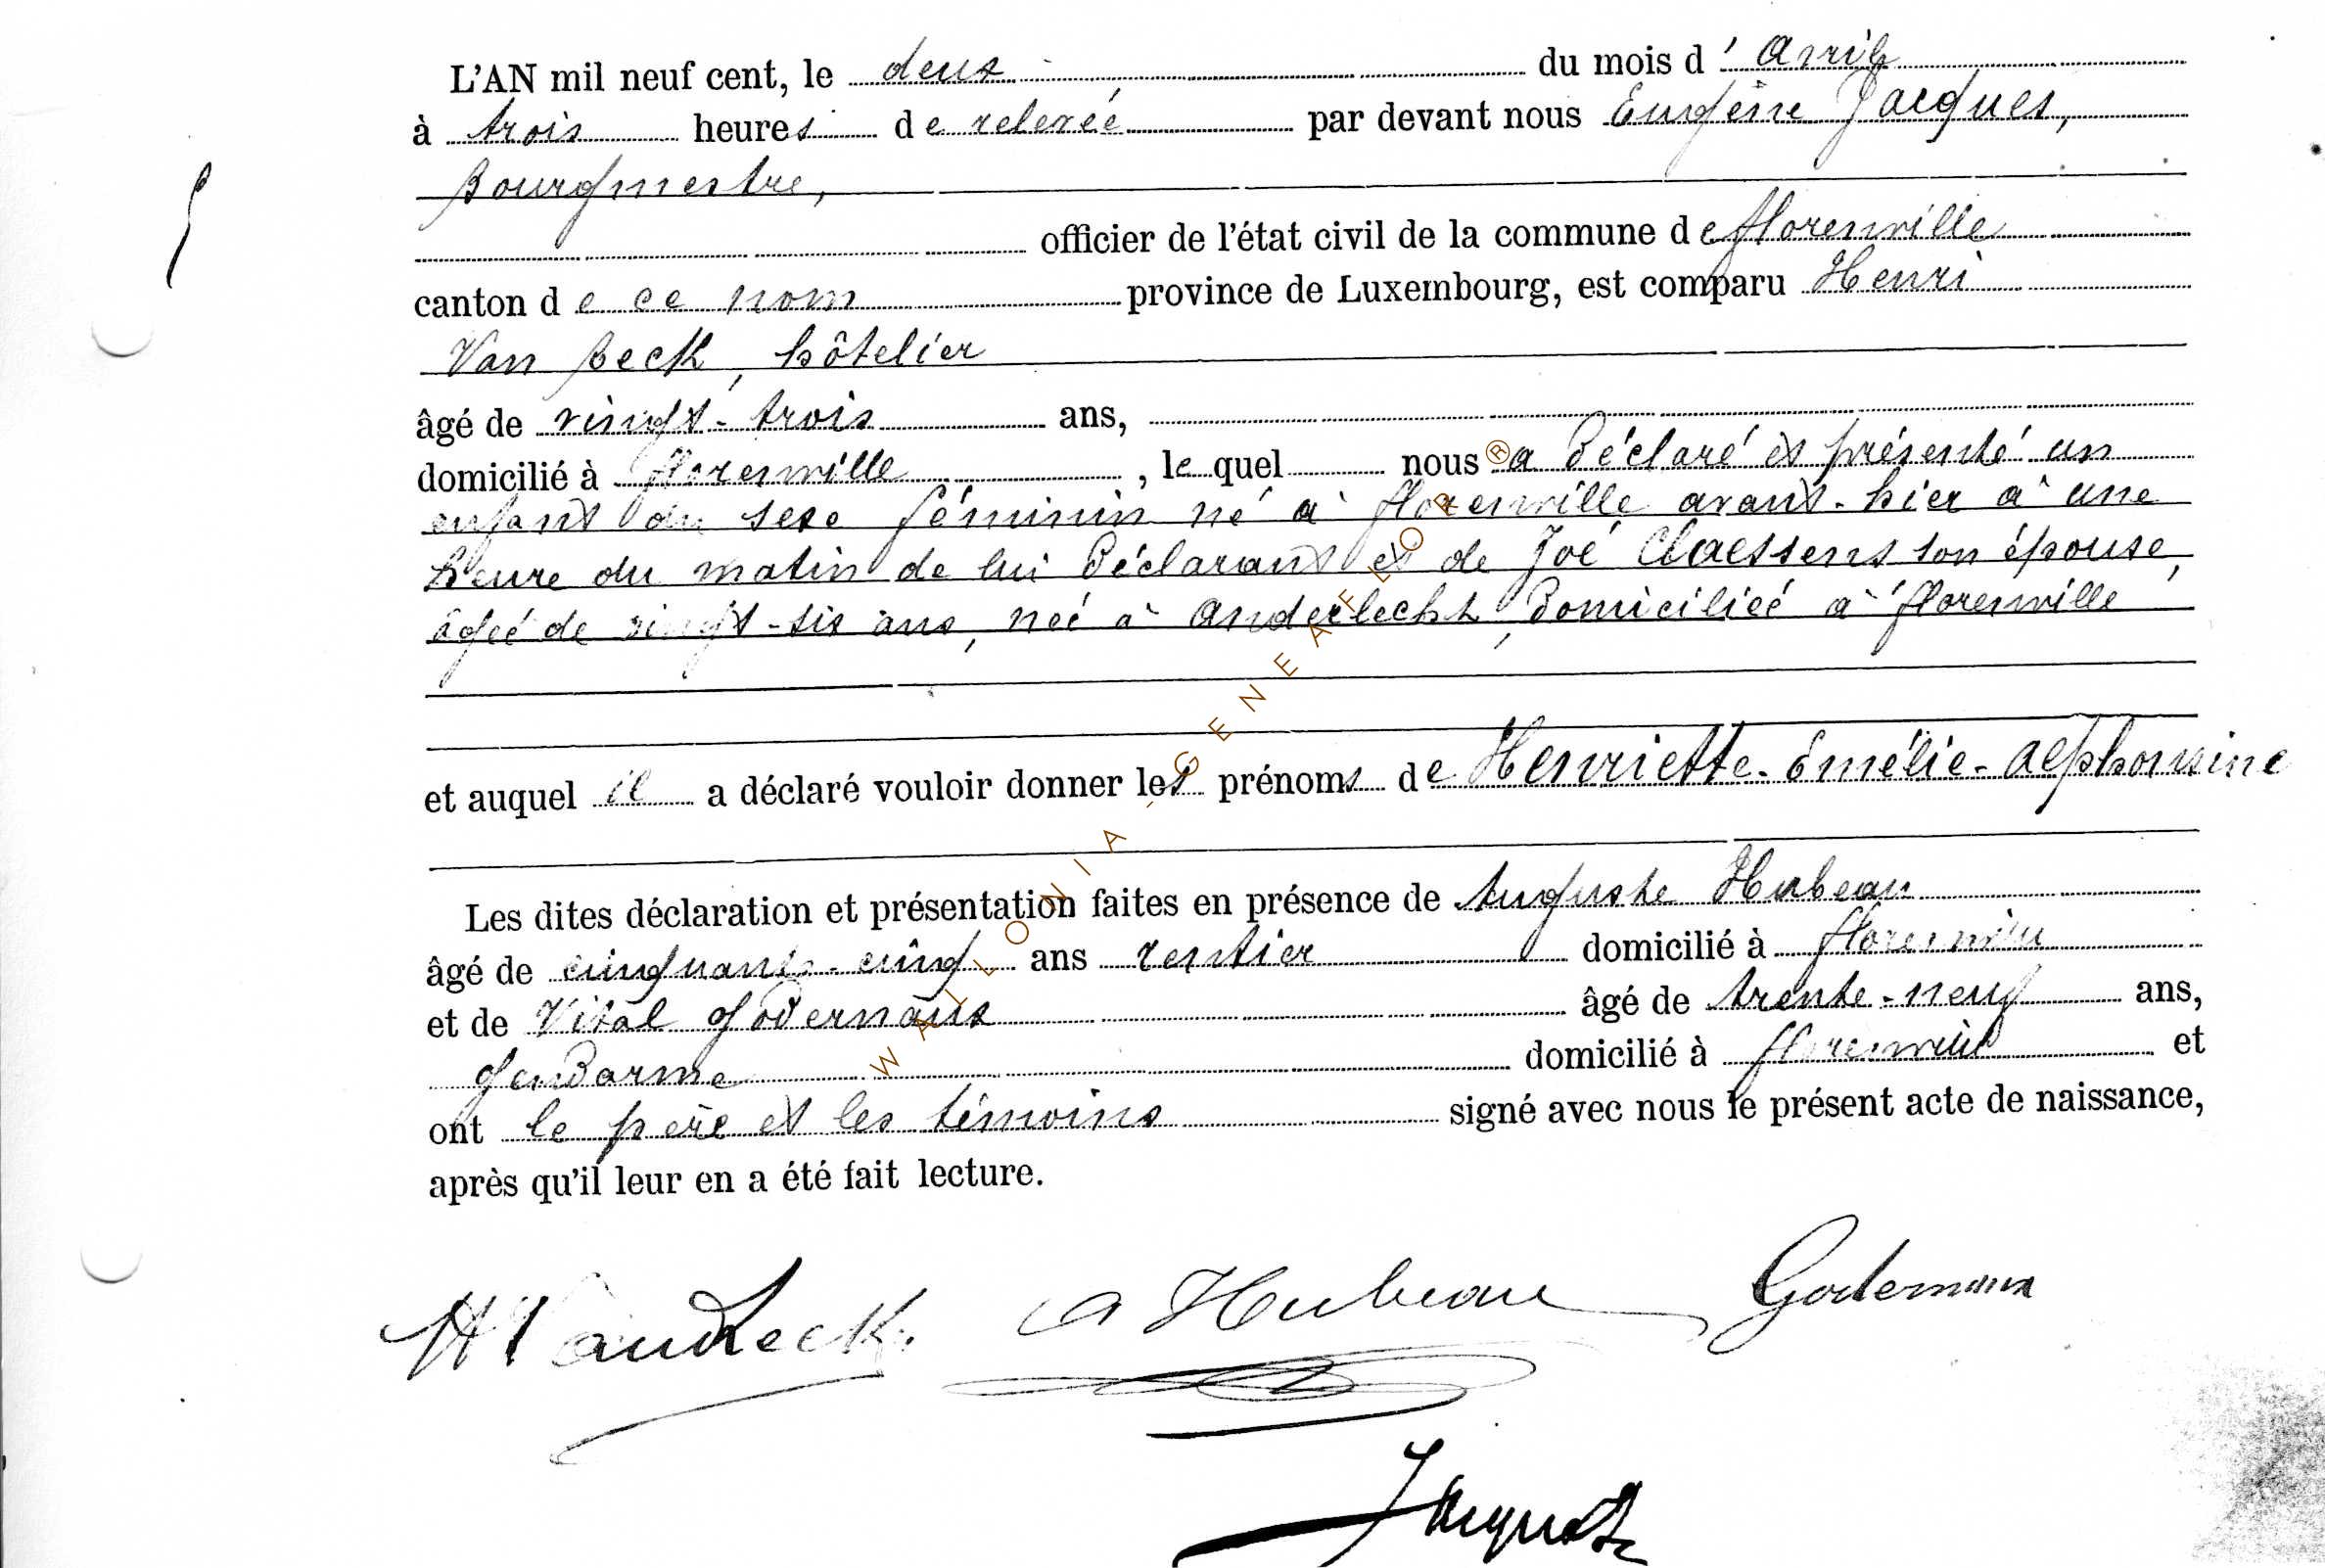 L'AN mil neuf cent, le deux du mois d'Avril
à trois heures de relevée par devant nous Eugène Jacques,
Bourgmestre,
officier de l'état civil de la commune de Florenville
canton de ce nom province de Luxembourg, est comparu Henri
Van Beck, hôtelier
âgé de vingt-trois ans,
domicilié à Florenville, le quel nous a déclaré et présenté un
enfant du sexe féminin né à Florenville avant-hier à une
heure du matin de lui déclarant et de Joé Claessens son épouse,
âgée de vingt-six ans, née à Anderlecht, domiciliée à Florenville
et auquel il a déclaré vouloir donner les prénoms de Henriette-Emélie-Alphonsine
Les dites déclaration et présentation faites en présence de Auguste Hubeau
âgé de cinquante-cinq ans rentier domicilié à Florenville
et de Vital Godernaux âgé de trente-neuf ans,
Gendarme domicilié à Florenville et
ont le père et les témoins signé avec nous le présent acte de naissance,
après qu'il leur en a été fait lecture.
H VanBeck A Hubeau Godernaux
WALLONIA - GENEAFLOR ®